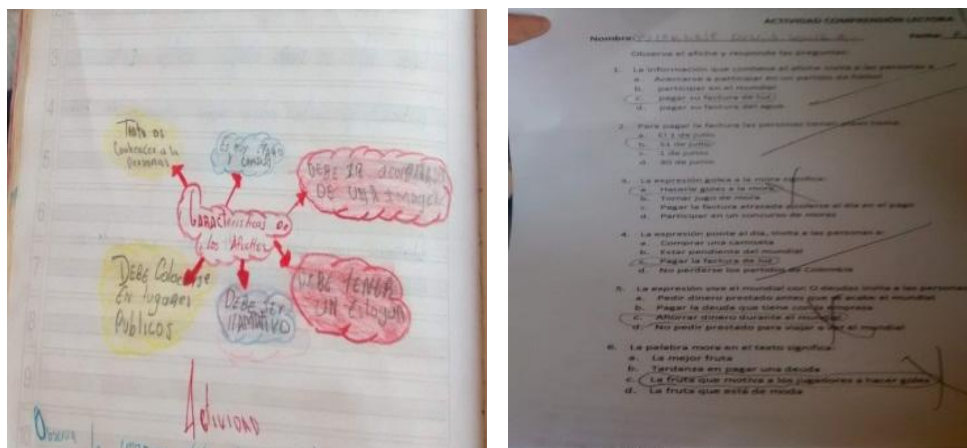 Trata de
Convencer a la
personas
DEBE IR acompañado
DE UNA Imagen
Características de
los Afiches
DEBE Colocarse
En lugares
Publicos
DEBE SER
llamativo
DEBE TENER
UN Eslogan
Actividad
Observa
ACTIVIDAD COMPRENSIÓN LECTORA
Nombre:
Fecha:
Observa el afiche y responde las preguntas:
1. La información que contiene el afiche invita a las personas a
a. Acercarse a participar en un partido de fútbol
b. participar en el mundial
c. pagar su factura de luz
d. pagar su factura del agua
2. Para pagar la factura las personas tienen plazo hasta:
a. El 1 de julio
b. 31 de julio
c. 1 de junio
d. 30 de junio
3. La expresión golea a la mora significa:
a. Hacerle goles a la mora
b. Tomar jugo de mora
c. Pagar la factura atrasada ponerse al día en el pago
d. Participar en un concurso de moras
4. La expresión ponte al día, invita a las personas a:
a. Comprar una camiseta
b. Estar pendiente del mundial
c. Pagar la factura de luz
d. No perderse los partidos de Colombia
5. La expresión vive el mundial con 0 deudas invita a las personas
a. Pedir dinero prestado antes que se acabe el mundial
b. Pagar la deuda que tiene con la empresa
c. Ahorrar dinero durante el mundial
d. No pedir prestado para viajar a ver el mundial
6. La palabra mora en el texto significa:
a. La mejor fruta
b. Tardanza en pagar una deuda
c. La fruta que motiva a los jugadores a hacer goles
d. La fruta que está de moda